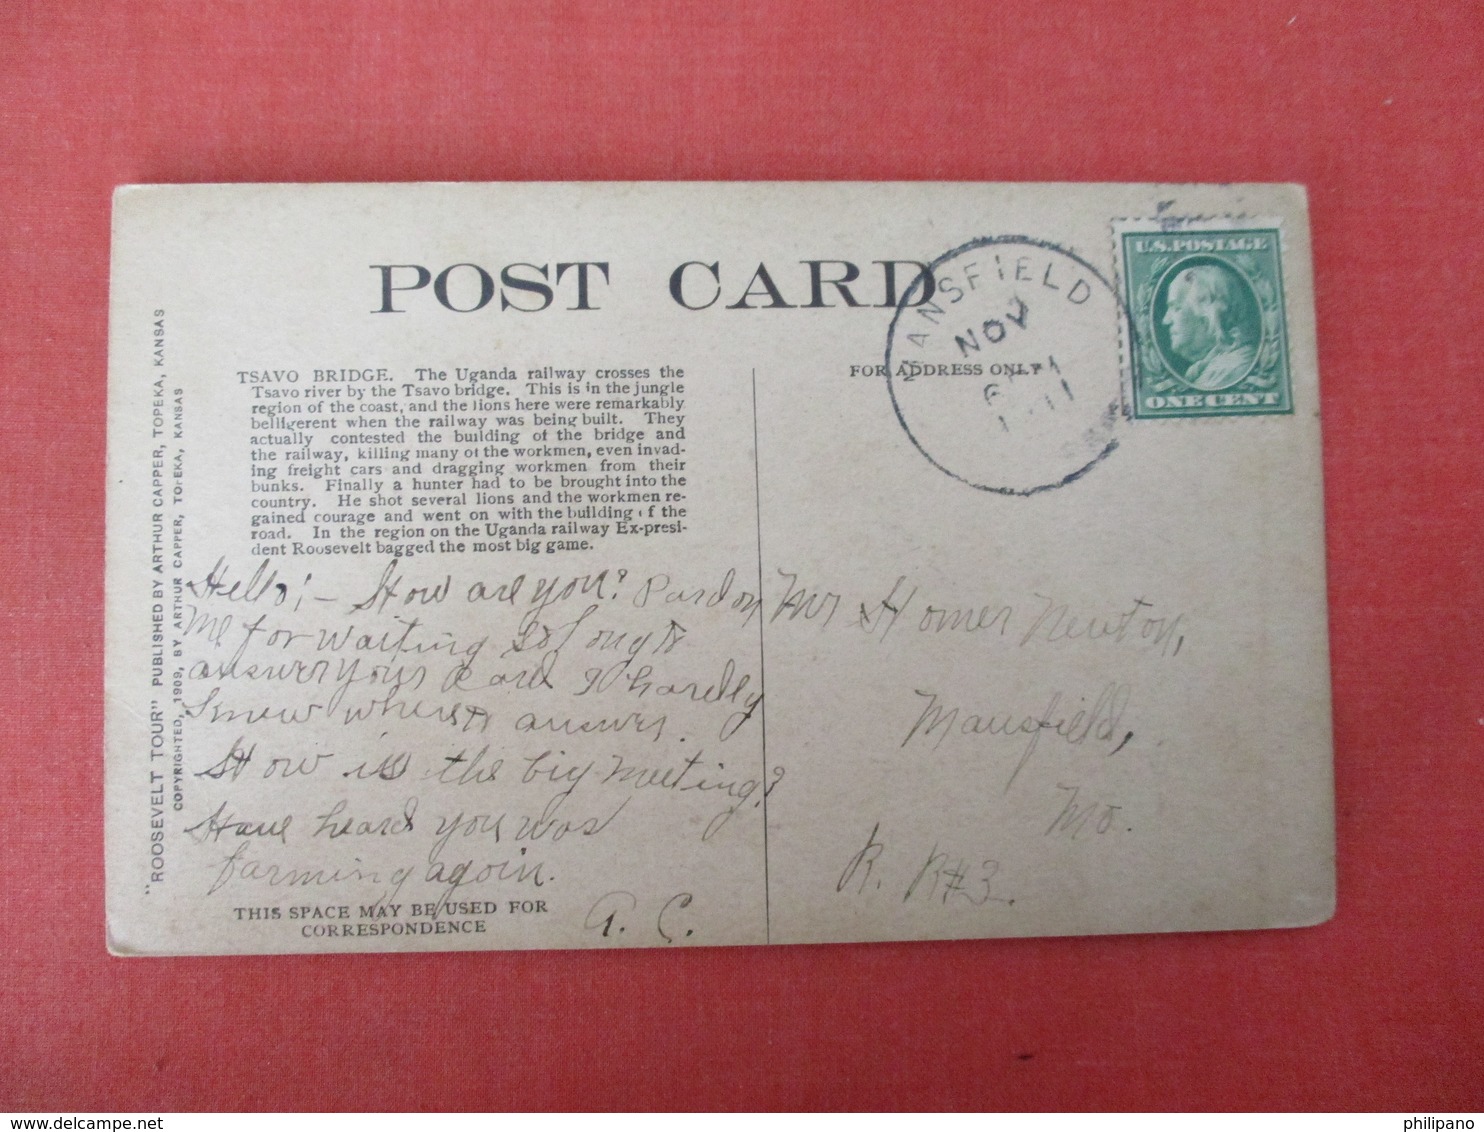 POST CARD
MANSFIELD
NOV
U.S. POSTAGE
ONE CENT
"ROOSEVELT TOUR" PUBLISHED BY ARTHUR CAPPER, TOPEKA, KANSAS
COPYRIGHTED, 1909, BY ARTHUR CAPPER, TOPEKA, KANSAS
TSAVO BRIDGE. The Uganda railway crosses the
Tsavo river by the Tsavo bridge. This is in the jungle
region of the coast, and the lions here were remarkably
belligerent when the railway was being built. They
actually contested the building of the bridge and
the railway, killing many of the workmen, even invad-
ing freight cars and dragging workmen from their
bunks. Finally a hunter had to be brought into the
country. He shot several lions and the workmen re-
gained courage and went on with the building of the
road. In the region on the Uganda railway Ex-presi-
dent Roosevelt bagged the most big game.
FOR ADDRESS ONLY
Hello! - How are you? Pardon
me for waiting so long to
answer your card I hardly
knew where to answer.
How is the big meeting?
Have heard you was
farming again.
G. C.
THIS SPACE MAY BE USED FOR
CORRESPONDENCE
Mr Homer Newton,
Mansfield,
Mo.
R. R#3.
philipano